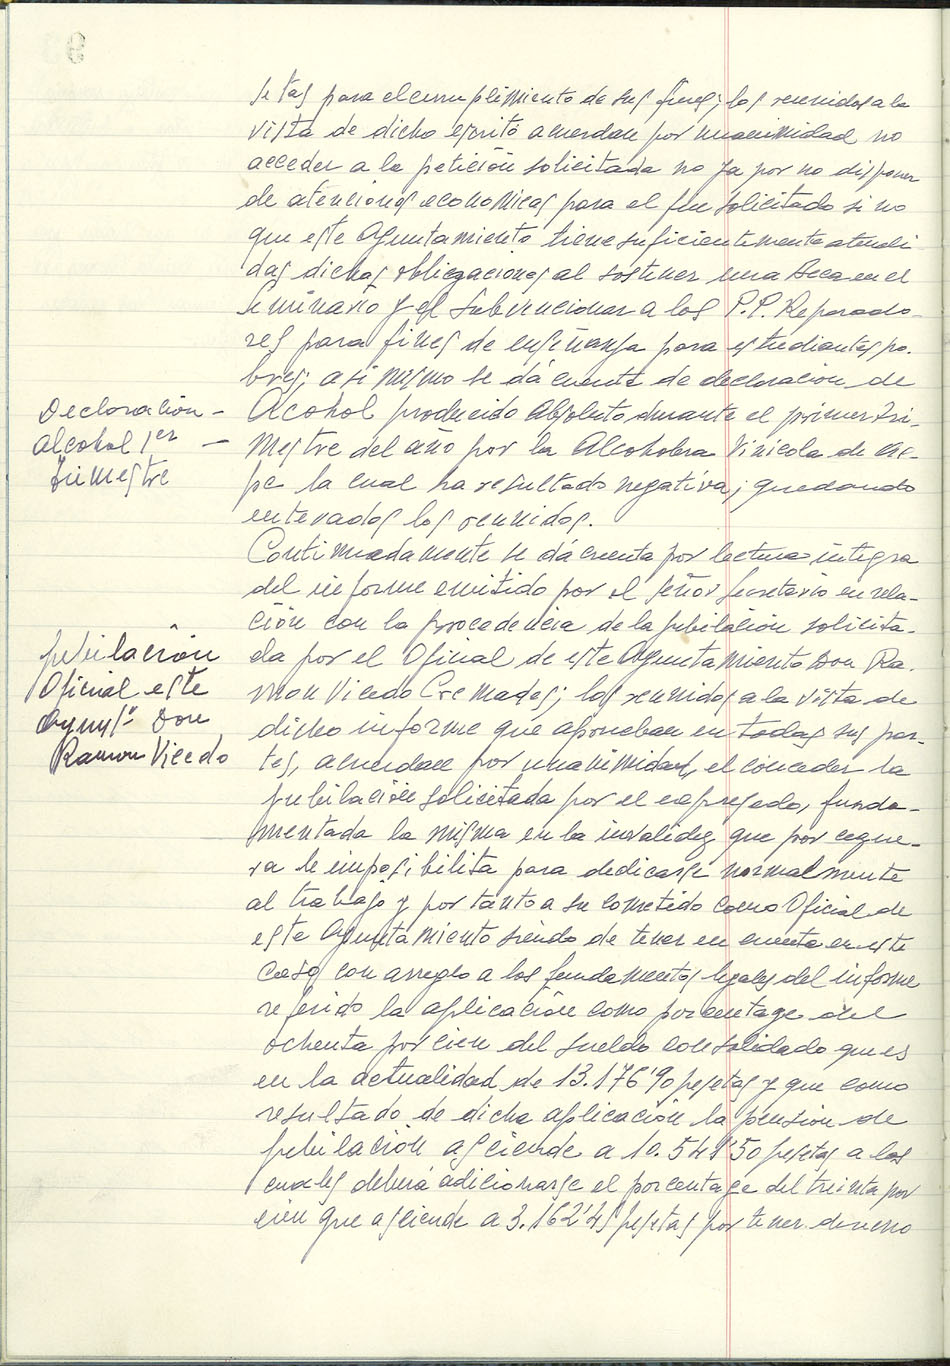 setas para el cumplimiento de sus fines; los reunidos a la
vista de dicho escrito acuerdan por unanimidad no
acceder a la petición solicitada no ya por no disponer
de atenciones economicas para el fin solicitado si no
que este Ayuntamiento tiene suficientemente atendi
das dichas obligaciones al sostener una Beca en el
seminario y el subvencionar a los P.P. Reparado-
res para fines de enseñanza para estudiantes po-
bres; asi mismo se dá cuenta de declaración de
Declaración -
alcohol 1er -
trimestre
Alcohol producido Absoluto durante el primer tri-
mestre del año por la Alcoholera Vinicola de As-
pe la cual ha resultado negativa; quedando
enterados los reunidos.
Continuadamente se dá cuenta por lectura integra
del informe emitido por el señor Secretario en rela-
ción con la procedencia de la jubilación solicita-
jubilación
Oficial este
Ayunt° Don
Ramon Vicedo
da por el Oficial de este Ayuntamiento Don Ra-
mon Vicedo Cremades; los reunidos a la vista de
dicho informe que aprueban en todas sus par-
tes, acuerdan por unanimidad, el conceder la
jubilación solicitada por el expresado, funda-
mentada la misma en la invalidez que por cegue-
ra le imposibilita para dedicarse normalmente
al trabajo y por tanto a su cometido como Oficial de
este Ayuntamiento siendo de tener en cuenta en este
caso con arreglo a los fundamentos legales del informe
referido la aplicación como porcentage del
ochenta por cien del sueldo consolidado que es
en la actualidad de 13.176'90 pesetas y que como
resultado de dicha aplicación la pensión de
jubilación asciende a 10.541'50 pesetas a las
cuales deberá adicionarse el porcentage del treinta por
cien que asciende a 3.162'45 pesetas por tener derecho